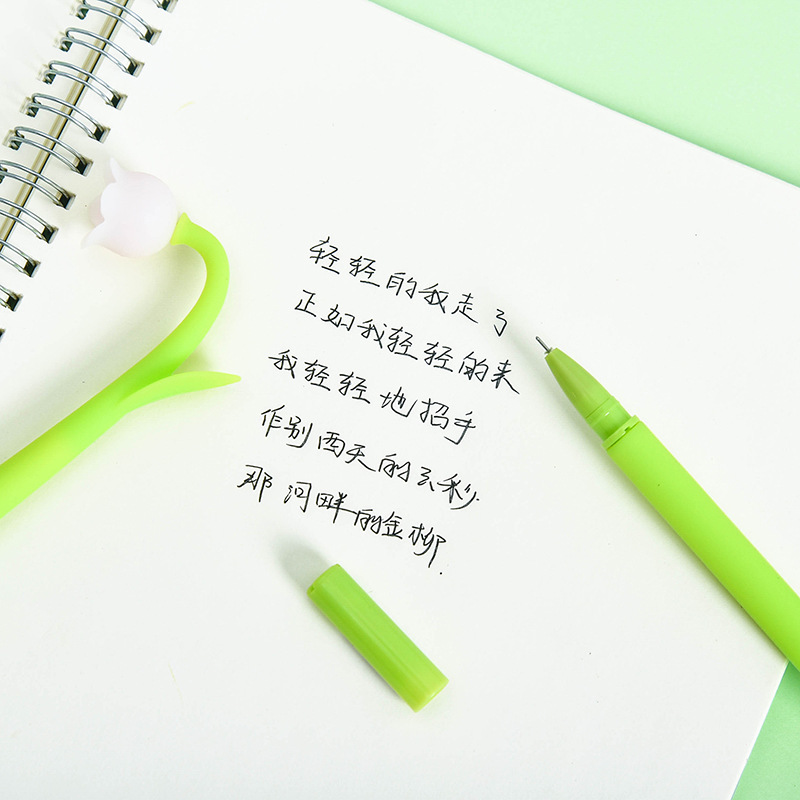 轻轻的我走了
正如我轻轻的来
我轻轻地招手
作别西天的云秒
那河畔的金柳.